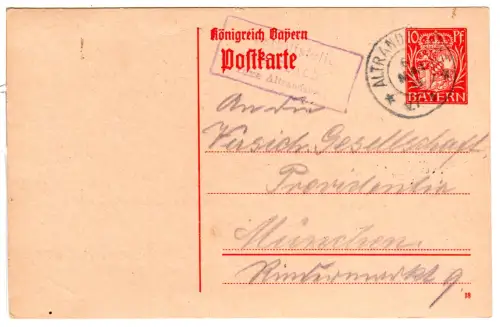 Königreich Bayern
Postkarte
10 PF
BAYERN
ALTRAND
An die
Versich. Gesellschaft
Providentia
München.
Rindermarkt 9.
18